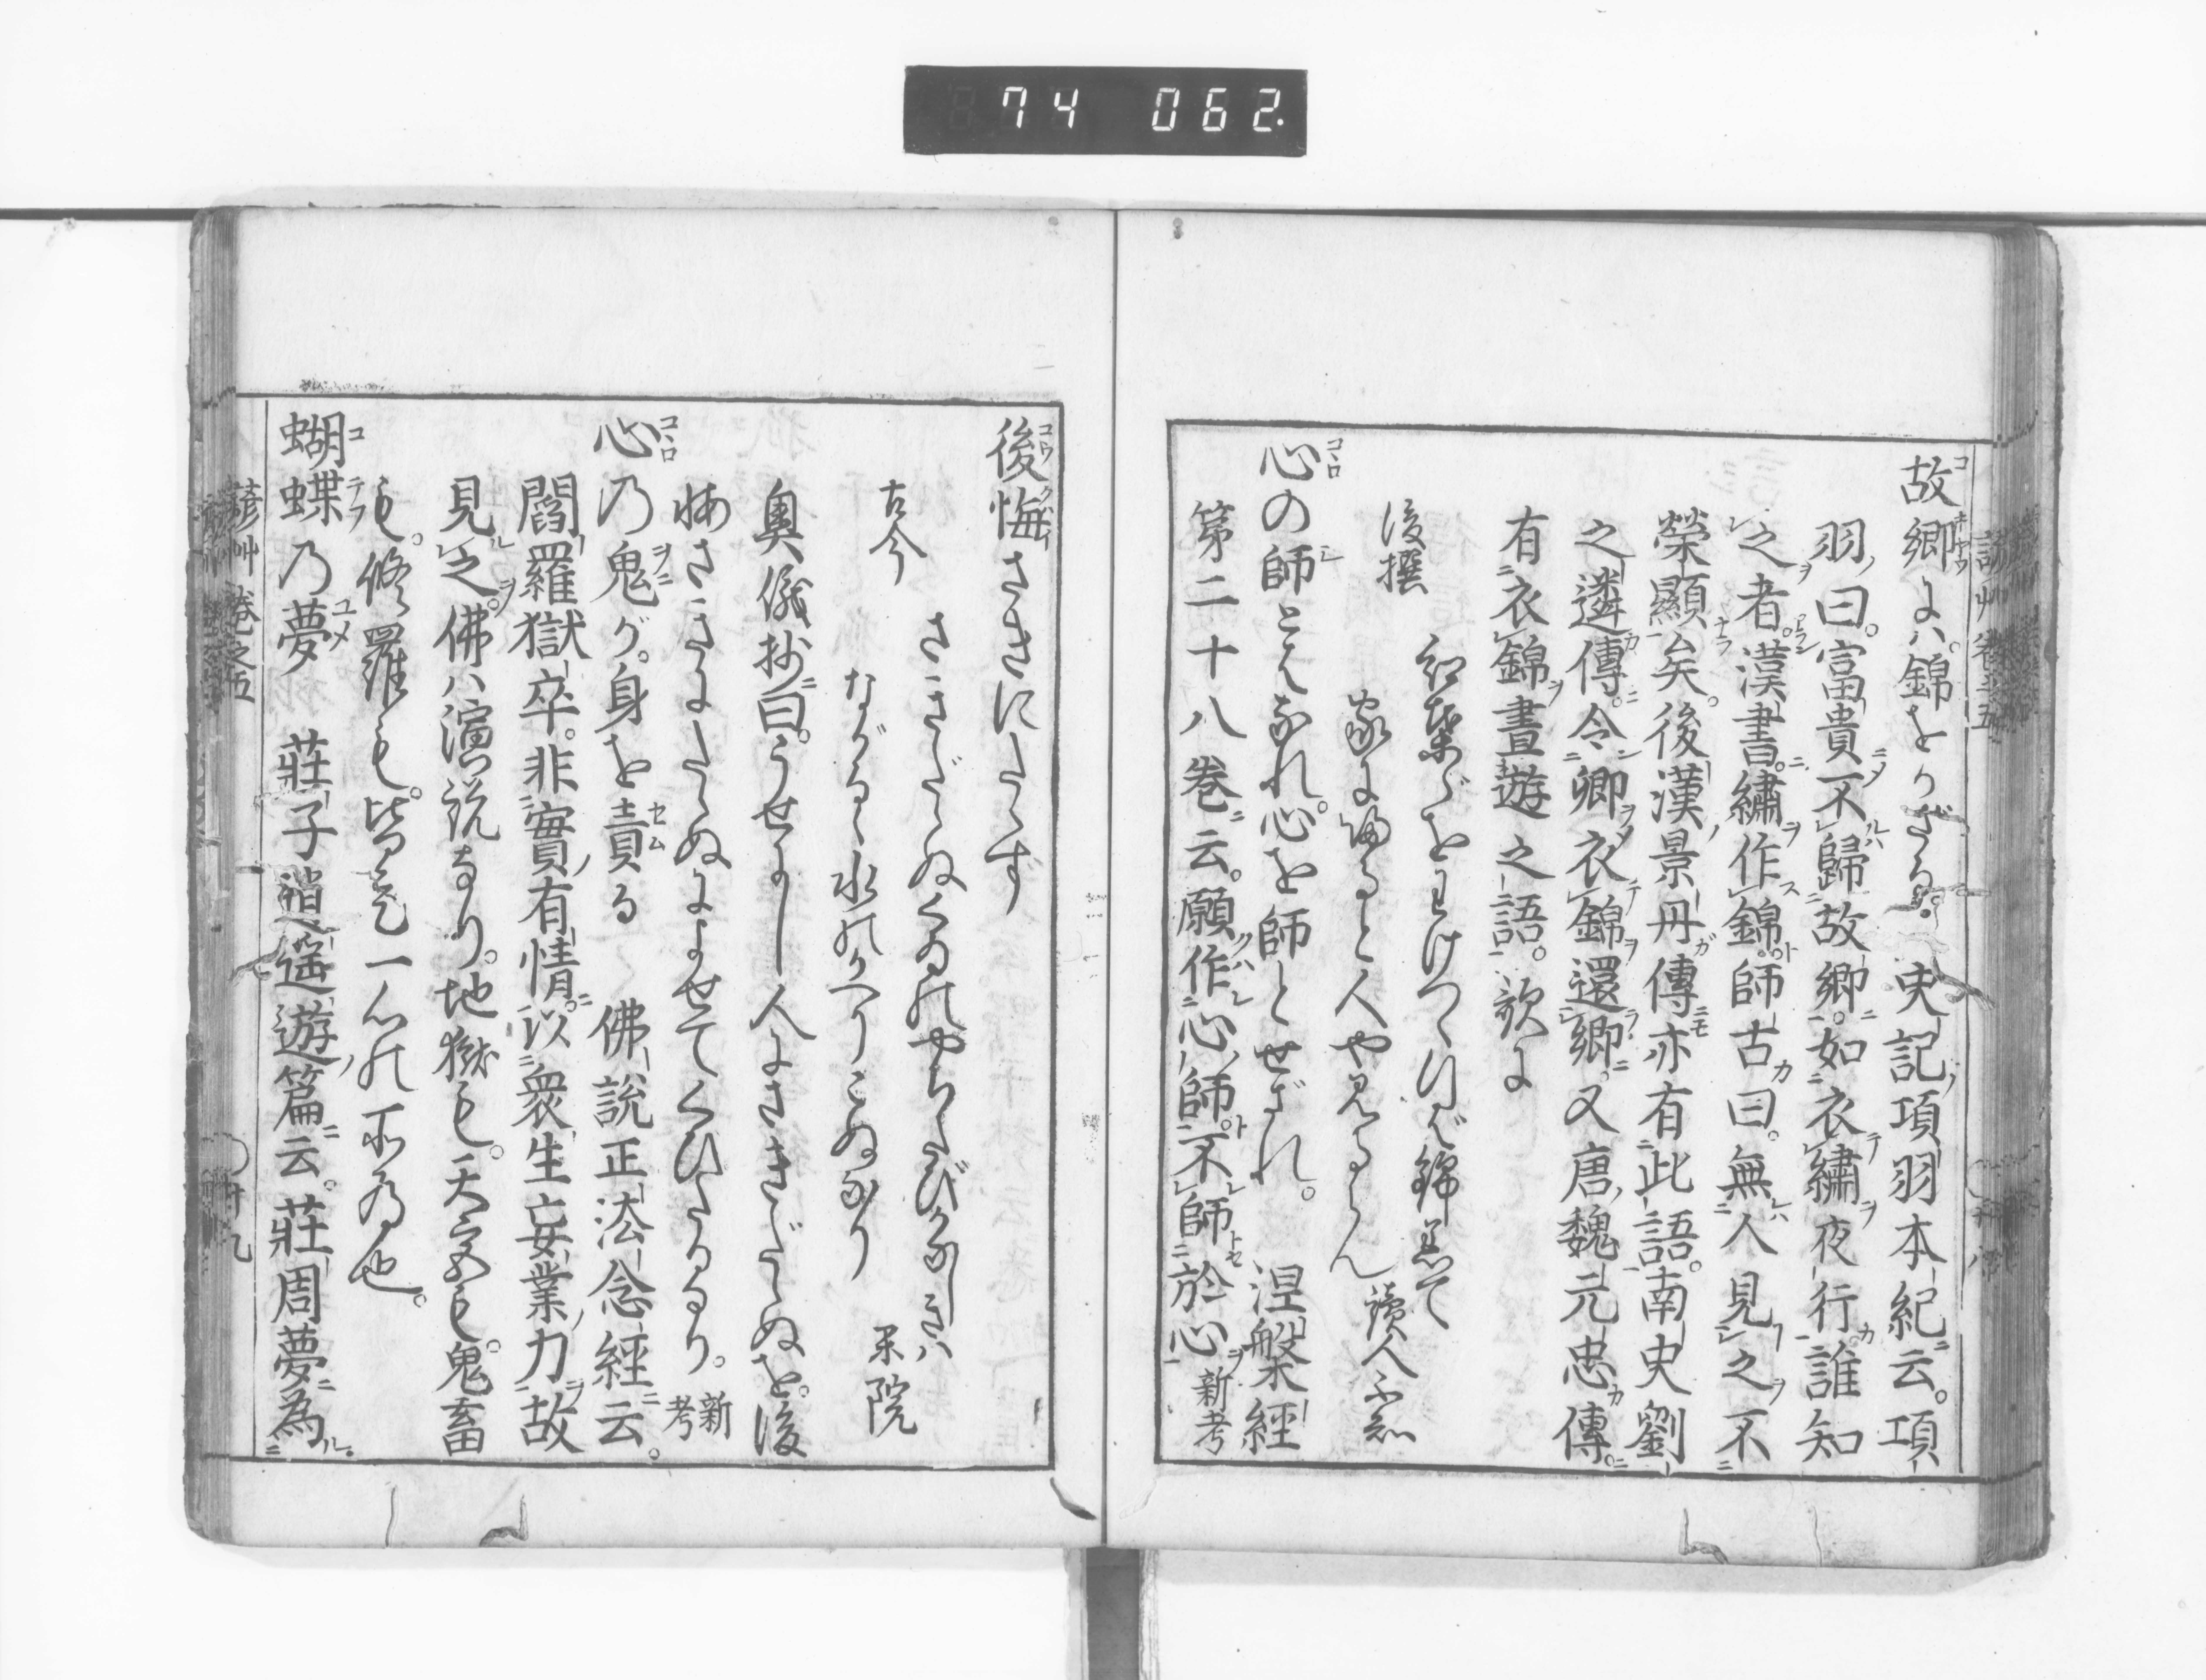 74 062.
故郷には。錦をかざる。 史記項羽本紀云。項
羽曰。富貴不歸故郷。如衣繡夜行。誰知
之者。漢書。繡作錦。師古曰。無人見之不
榮顯矣。後漢景丹傳亦有此語。南史劉
之遴傳。令卿衣錦還郷。又唐魏元忠傳。
有衣錦晝遊之語。歌に
後撰 紅葉ゞをわけつゝ行ば錦着て
家に帰ると人や見るらん 讀人不知
心の師とはなれ。心を師とせざれ。 涅槃經
第二十八巻云。願作心師。不師於心 新考
後悔さきにたゝず
古今 さきだゝぬくゐのやちたびかなしきは
ながるゝ水のかへりこぬなり 閑院
奥儀抄曰。うせにし人にさきだゝぬを。後
悔さきにたゝぬによせてくひたるなり。 新考
心の鬼が。身を責る 佛説正法念經云。
閻羅獄卒。非實有情。以衆生妄業力故
見之。佛ハ演説なり。地獄も。天宮も。鬼畜
も。修羅も。皆是一心の所為也。
蝴蝶の夢 莊子逍遥遊篇云。莊周夢為
諺艸 巻之五 廿九